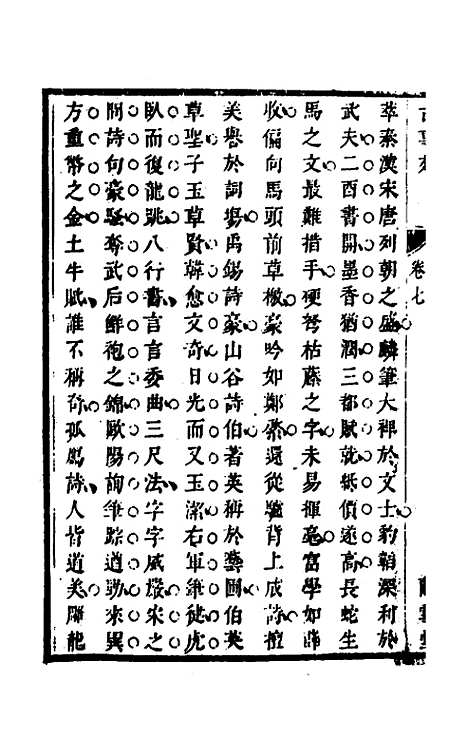 卷七
萃秦漢宋唐列朝之盛麟筆大裨於文士豹韜深利於
武夫二酉書開墨香猶潤三都賦就紙價遂高長蛇生
馬之文最難措手硬弩枯藤之字未易揮毫富學如薛
收偏向馬頭前草檄豪吟如鄭綮還從驢背上成詩擅
美譽於詞場禹錫詩豪山谷詩伯著英稱於藝圃伯英
草聖子玉草賢韓愈文奇日光而又玉潔右軍筆徒虎
臥而復龍跳八行書言言委曲三尺法字字威嚴宋之
問詩句豪騷奪武后鮮袍之錦歐陽詢筆踪遒勁來異
方重幣之金土牛賦誰不稱奇孤鴈詩人皆道美降龍